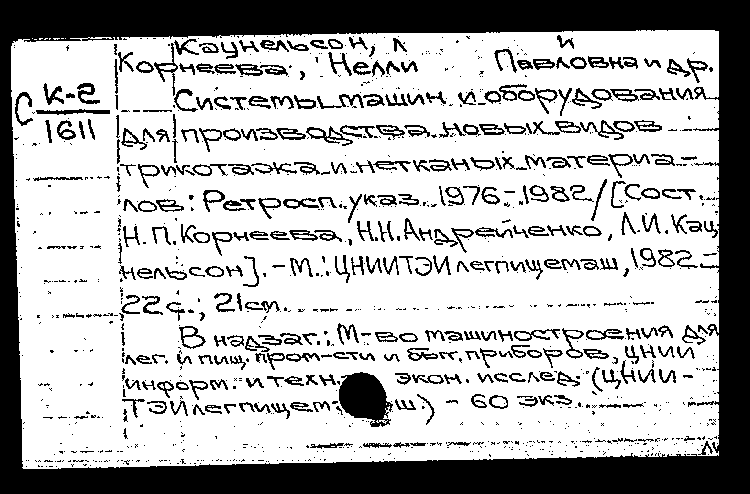 Каунельсон, Л и
Корнеева, Нелли Павловна и др.
С К-2
1611
Системы машин и оборудования
для производства новых видов
трикотажа и нетканых материа-
лов: Ретросп. указ. 1976-1982/[Сост.
Н.П.Корнеева, Н.Н.Андрейченко, Л.И.Кац
нельсон]. - М.: ЦНИИТЭИлегпищемаш, 1982.-
22 с.; 21 см.
В надзаг.: М-во машиностроения для
лег. и пищ. пром-сти и быт. приборов, ЦНИИ
информ. и техн. экон. исслед. (ЦНИИ-
ТЭИлегпищем ш.) - 60 экз.